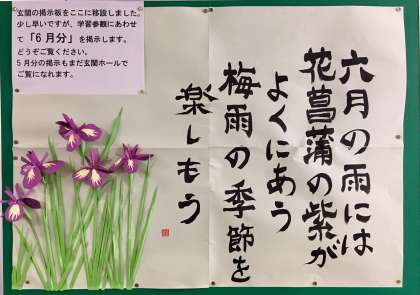 玄関の掲示板をここに移設しました。
少し早いですが、学習参観にあわせ
て「6月分」を掲示します。
どうぞご覧ください。
5月分の掲示もまだ玄関ホールで
ご覧になれます。
六月の雨には
花菖蒲の紫が
よくにあう
梅雨の季節を
楽しもう